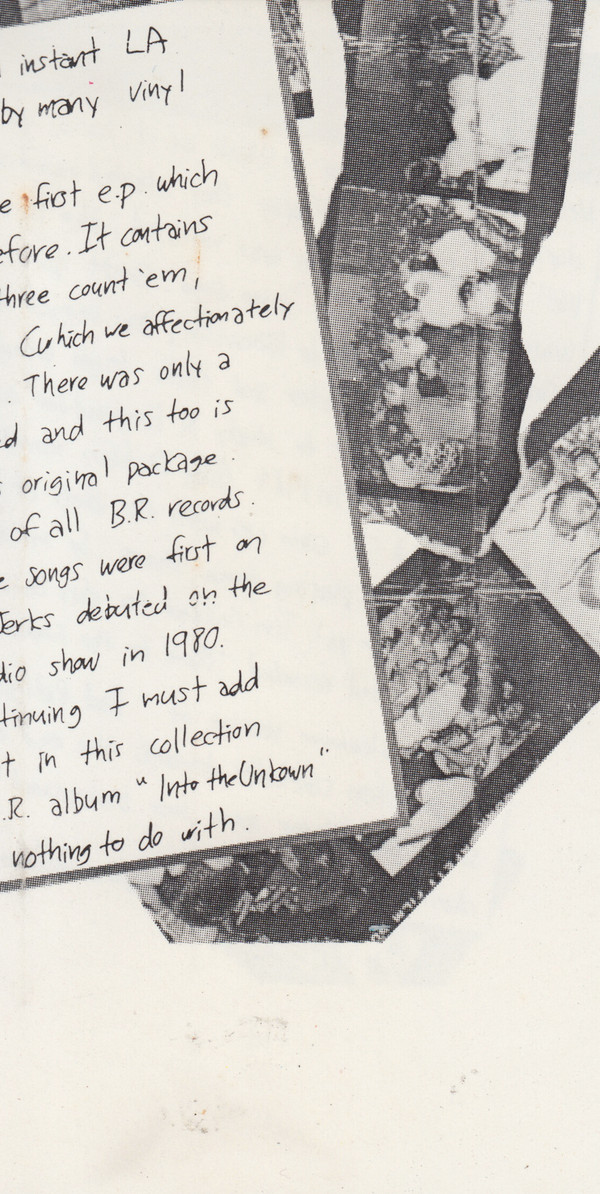 instant LA
by many vinyl
first e.p. which
efore. It contains
three count 'em,
(which we affectionately
. There was only a
ed and this too is
s original package.
of all B.R. records.
e songs were first on
Jerks debuted on the
dio show in 1980.
tinuing I must add
t in this collection
.R. album "Into the Unkown"
nothing to do with.